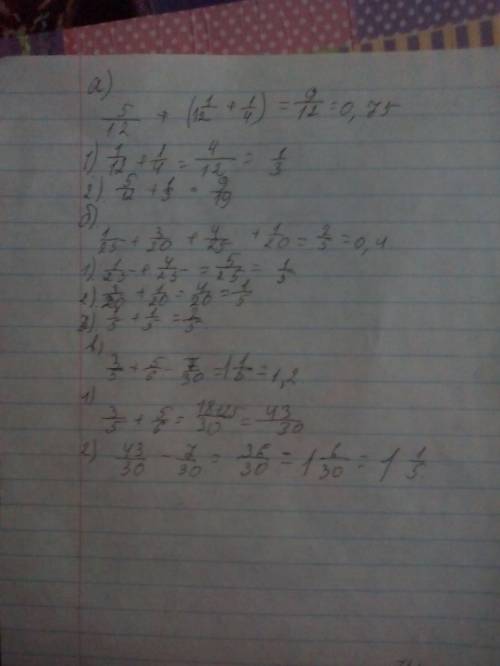 а)
5/12 + (1/12 + 1/4) = 9/12 = 0,75
1) 1/12 + 1/4 = 4/12 = 1/3
2) 5/12 + 1/3 = 9/19
б)
1/25 + 3/20 + 4/25 + 1/20 = 2/5 = 0,4
1) 1/25 + 4/25 = 5/25 = 1/5
2) 3/20 + 1/20 = 4/20 = 1/5
3) 1/5 + 1/5 = 2/5
в)
3/5 + 5/6 - 7/30 = 1 1/5 = 1,2
1)
3/5 + 5/6 = 18+25/30 = 43/30
2) 43/30 - 7/30 = 36/30 = 1 6/30 = 1 1/5